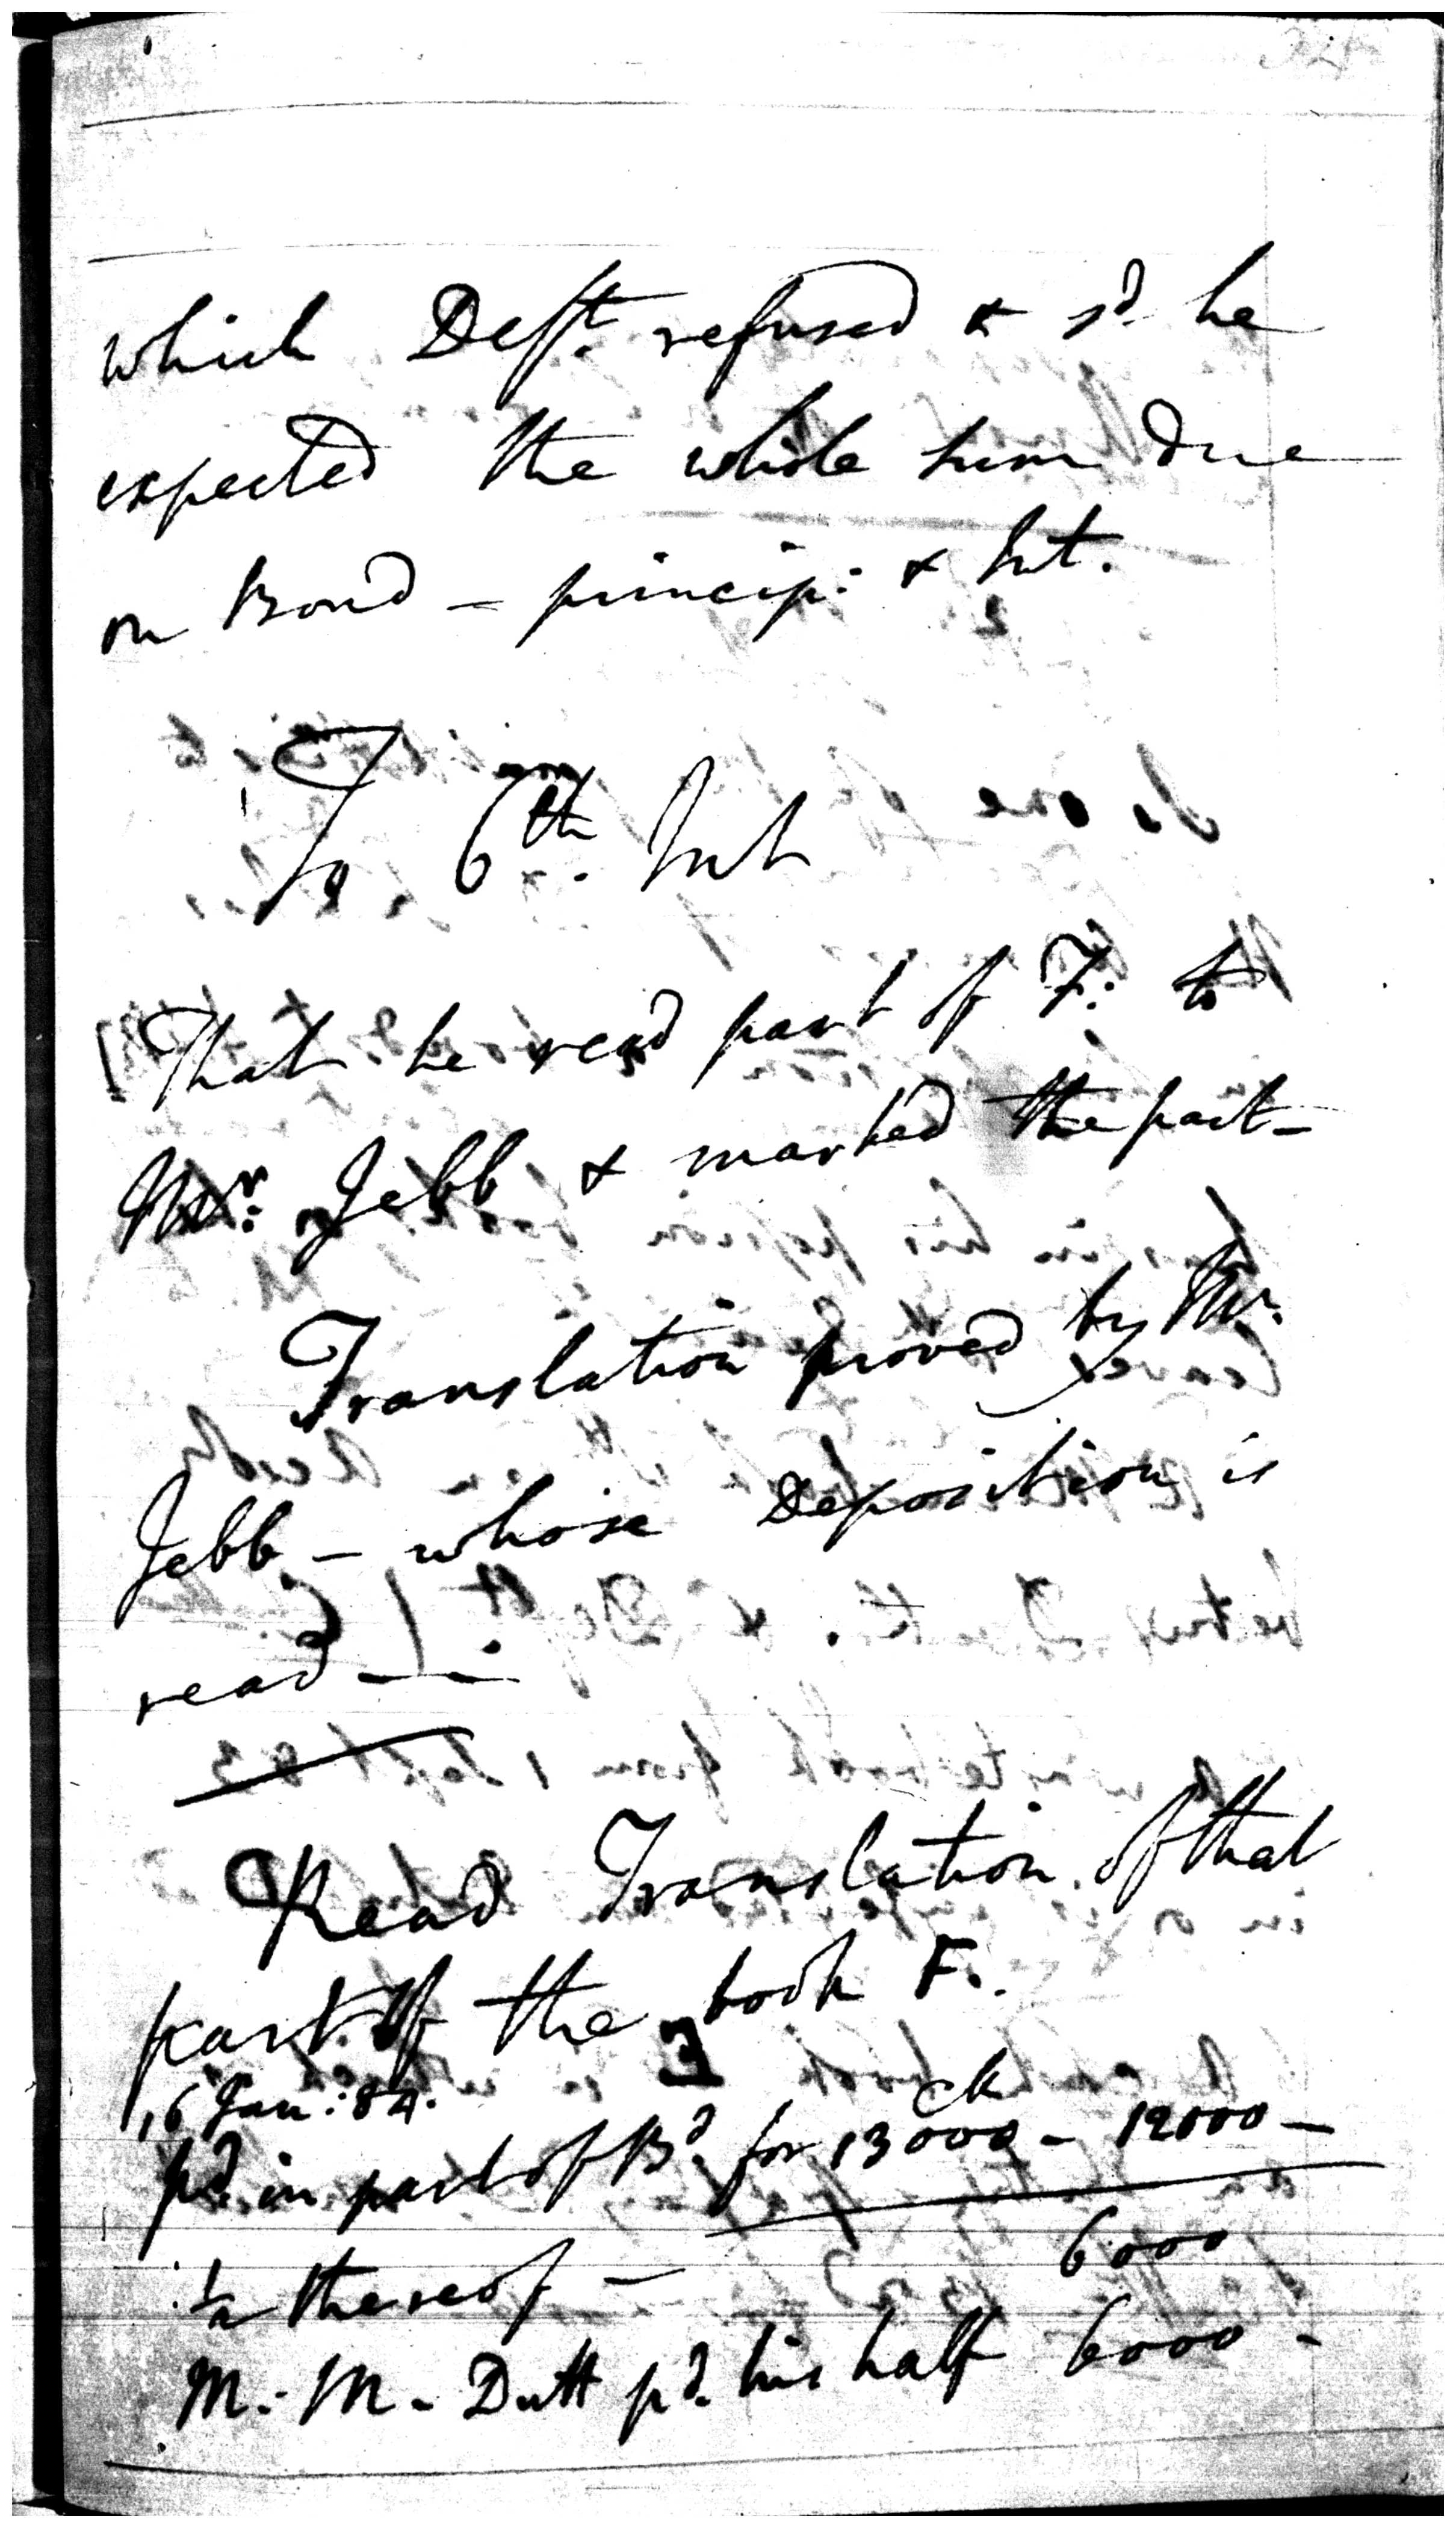 which Deft. refused & sd. he
expected the whole sum due
on Bond - princip: & Int.
To 6th. Int
That he read part of F: to
Mr: Jebb & marked the part-
Translation proved by Mr.
Jebb - whose Deposition is
read -
Read Translation of that
part of the book F.
16 Jan: 84.
ck
pd. in part of Bd. for 13000 - 12000 -
1/2 thereof - 6000
M. M. Dutt pd. his half 6000 -